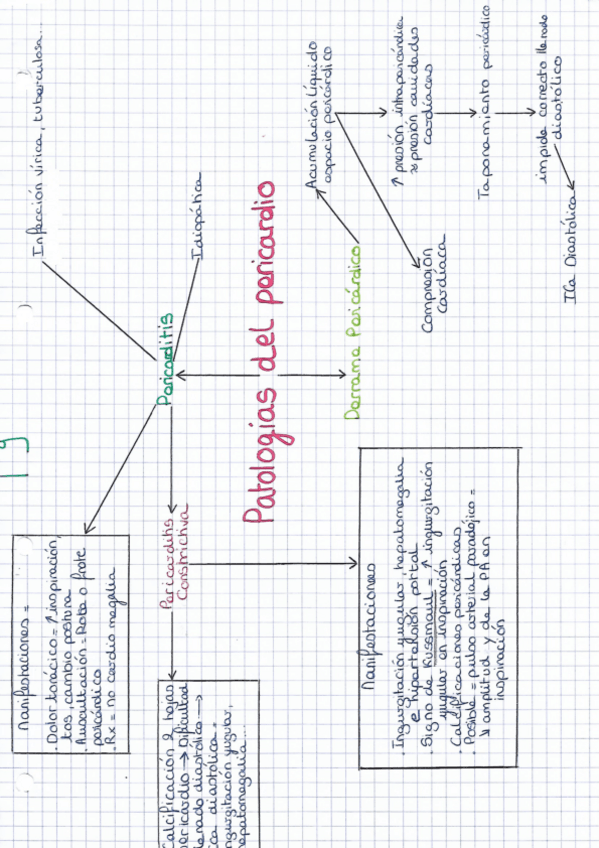 Patologías del pericardio
Pericarditis
Infección vírica, tuberculosa...
Idiopática
Manifestaciones =
. Dolor torácico = ↑ inspiración,
tos, cambio postura
. Auscultación = Roce o frote
pericárdico
. Rx = no cardiomegalia
Pericarditis
Constrictiva
Calcificación 2 hojas
pericardio → Dificultad
llenado diastólico →
ica diastólica =
ingurgitación yugular,
hepatomegalia...
Manifestaciones
. Ingurgitación yugular, hepatomegalia
e hipertensión portal
. Signo de Kussmaul = ↑ ingurgitación
yugular en inspiración
. Calcificaciones pericárdicas
. Posible = pulso arterial paradójico =
↓ amplitud y de la PA en
inspiración
Derrame Pericárdico
Acumulación líquido
espacio pericárdico
↑ presión intrapericárdica
presión cavidades
cardíacas
Taponamiento pericárdico
impide correcto llenado
diastólico
ICa Diastólica
Compresión
cardíaca